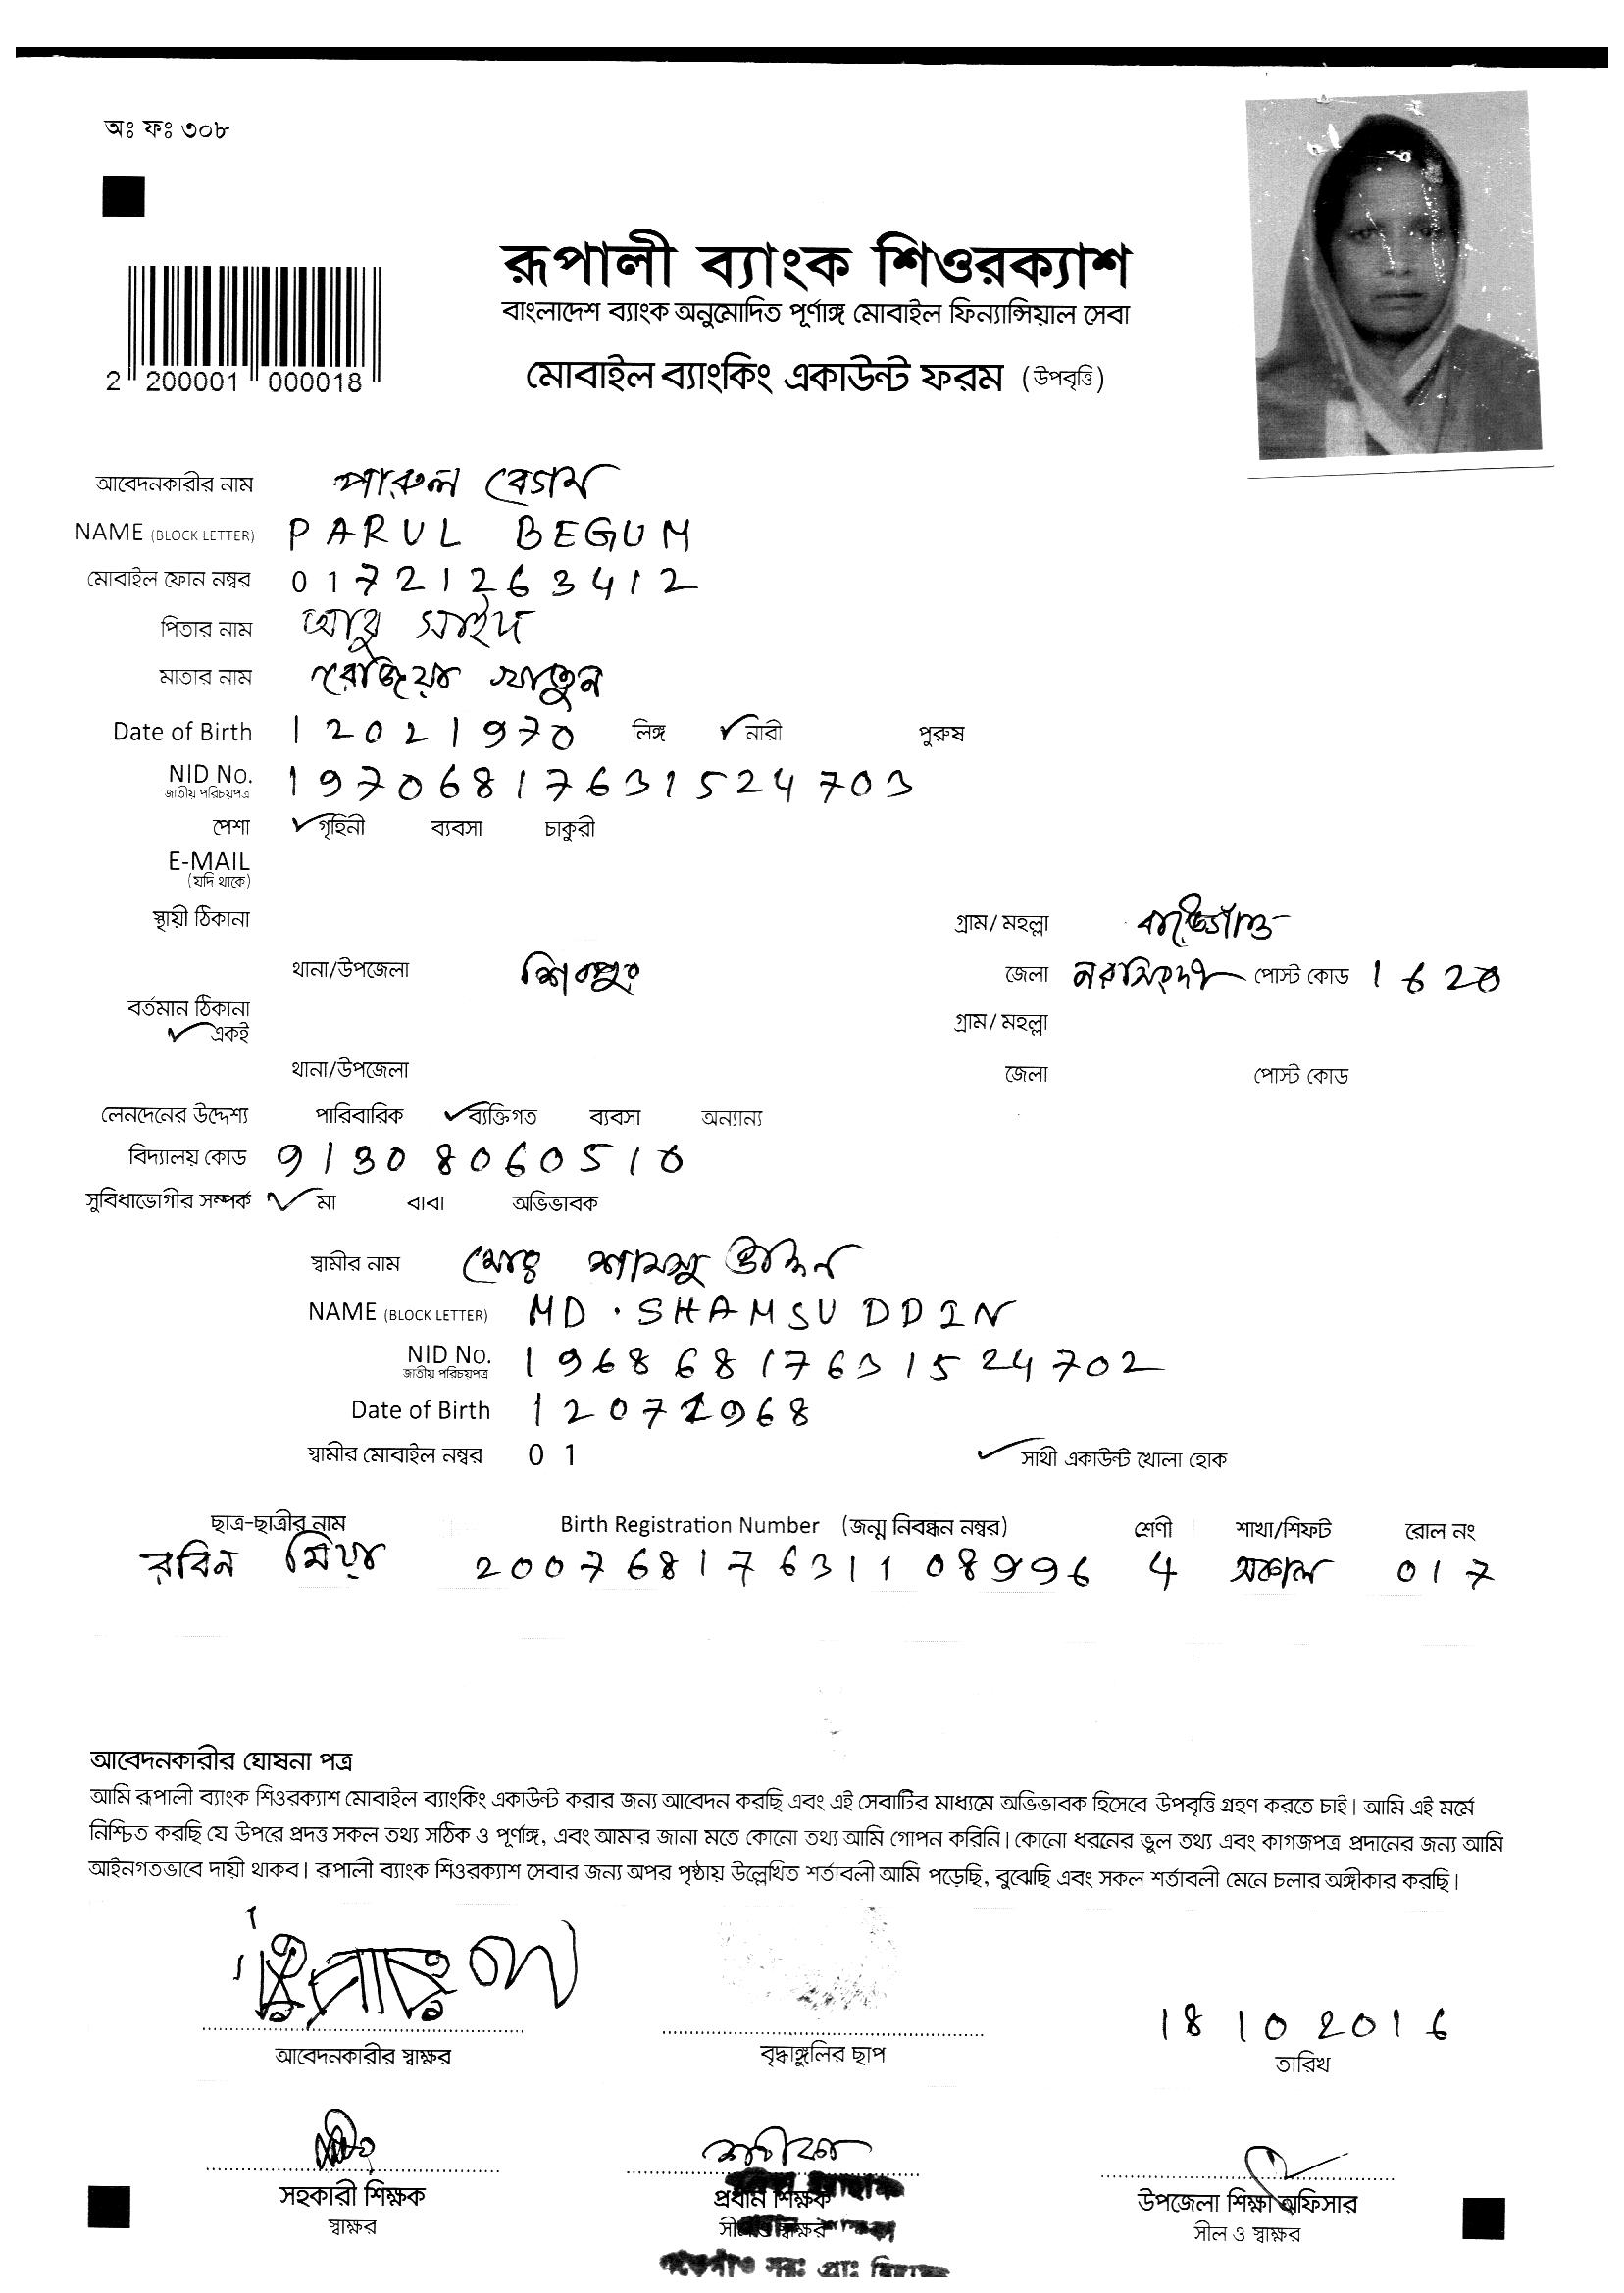 অঃ ফঃ ৩০৮
রূপালী ব্যাংক শিওরক্যাশ
বাংলাদেশ ব্যাংক অনুমোদিত পূর্ণাঙ্গ মোবাইল ফিন্যান্সিয়াল সেবা
2 200001 000018
মোবাইল ব্যাংকিং একাউন্ট ফরম (উপবৃত্তি)
আবেদনকারীর নাম পারুল বেগম
NAME (BLOCK LETTER) PARUL BEGUM
মোবাইল ফোন নম্বর 01721263412
পিতার নাম আবু সাইদ
মাতার নাম রেজিয়া খাতুন
Date of Birth 12021970 লিঙ্গ ✓ নারী পুরুষ
NID No. 19706817631524703
জাতীয় পরিচয়পত্র
পেশা ✓ গৃহিনী ব্যবসা চাকুরী
E-MAIL
(যদি থাকে)
স্থায়ী ঠিকানা গ্রাম/ মহল্লা
থানা/উপজেলা শিবপুর জেলা নরসিংদী পোস্ট কোড 1620
বর্তমান ঠিকানা গ্রাম/ মহল্লা
✓ একই
থানা/উপজেলা জেলা পোস্ট কোড
লেনদেনের উদ্দেশ্য পারিবারিক ✓ ব্যক্তিগত ব্যবসা অন্যান্য
বিদ্যালয় কোড 91308060510
সুবিধাভোগীর সম্পর্ক ✓ মা বাবা অভিভাবক
স্বামীর নাম মোঃ শামসু উদ্দিন
NAME (BLOCK LETTER) MD. SHAMSUDDIN
NID No. 19686817631524702
জাতীয় পরিচয়পত্র
Date of Birth 12071968
স্বামীর মোবাইল নম্বর 01 ✓ সাথী একাউন্ট খোলা হোক
ছাত্র-ছাত্রীর নাম Birth Registration Number (জন্ম নিবন্ধন নম্বর) শ্রেণী শাখা/শিফট রোল নং
রবিন মিয়া 20076817631108996 4 017
আবেদনকারীর ঘোষনা পত্র
আমি রূপালী ব্যাংক শিওরক্যাশ মোবাইল ব্যাংকিং একাউন্ট করার জন্য আবেদন করছি এবং এই সেবাটির মাধ্যমে অভিভাবক হিসেবে উপবৃত্তি গ্রহণ করতে চাই। আমি এই মর্মে
নিশ্চিত করছি যে উপরে প্রদত্ত সকল তথ্য সঠিক ও পূর্ণাঙ্গ, এবং আমার জানা মতে কোনো তথ্য আমি গোপন করিনি। কোনো ধরনের ভুল তথ্য এবং কাগজপত্র প্রদানের জন্য আমি
আইনগতভাবে দায়ী থাকব। রূপালী ব্যাংক শিওরক্যাশ সেবার জন্য অপর পৃষ্ঠায় উল্লেখিত শর্তাবলী আমি পড়েছি, বুঝেছি এবং সকল শর্তাবলী মেনে চলার অঙ্গীকার করছি।
18 10 2016
আবেদনকারীর স্বাক্ষর বৃদ্ধাঙ্গুলির ছাপ তারিখ
সহকারী শিক্ষক প্রধান শিক্ষক উপজেলা শিক্ষা অফিসার
স্বাক্ষর সীল ও স্বাক্ষর সীল ও স্বাক্ষর